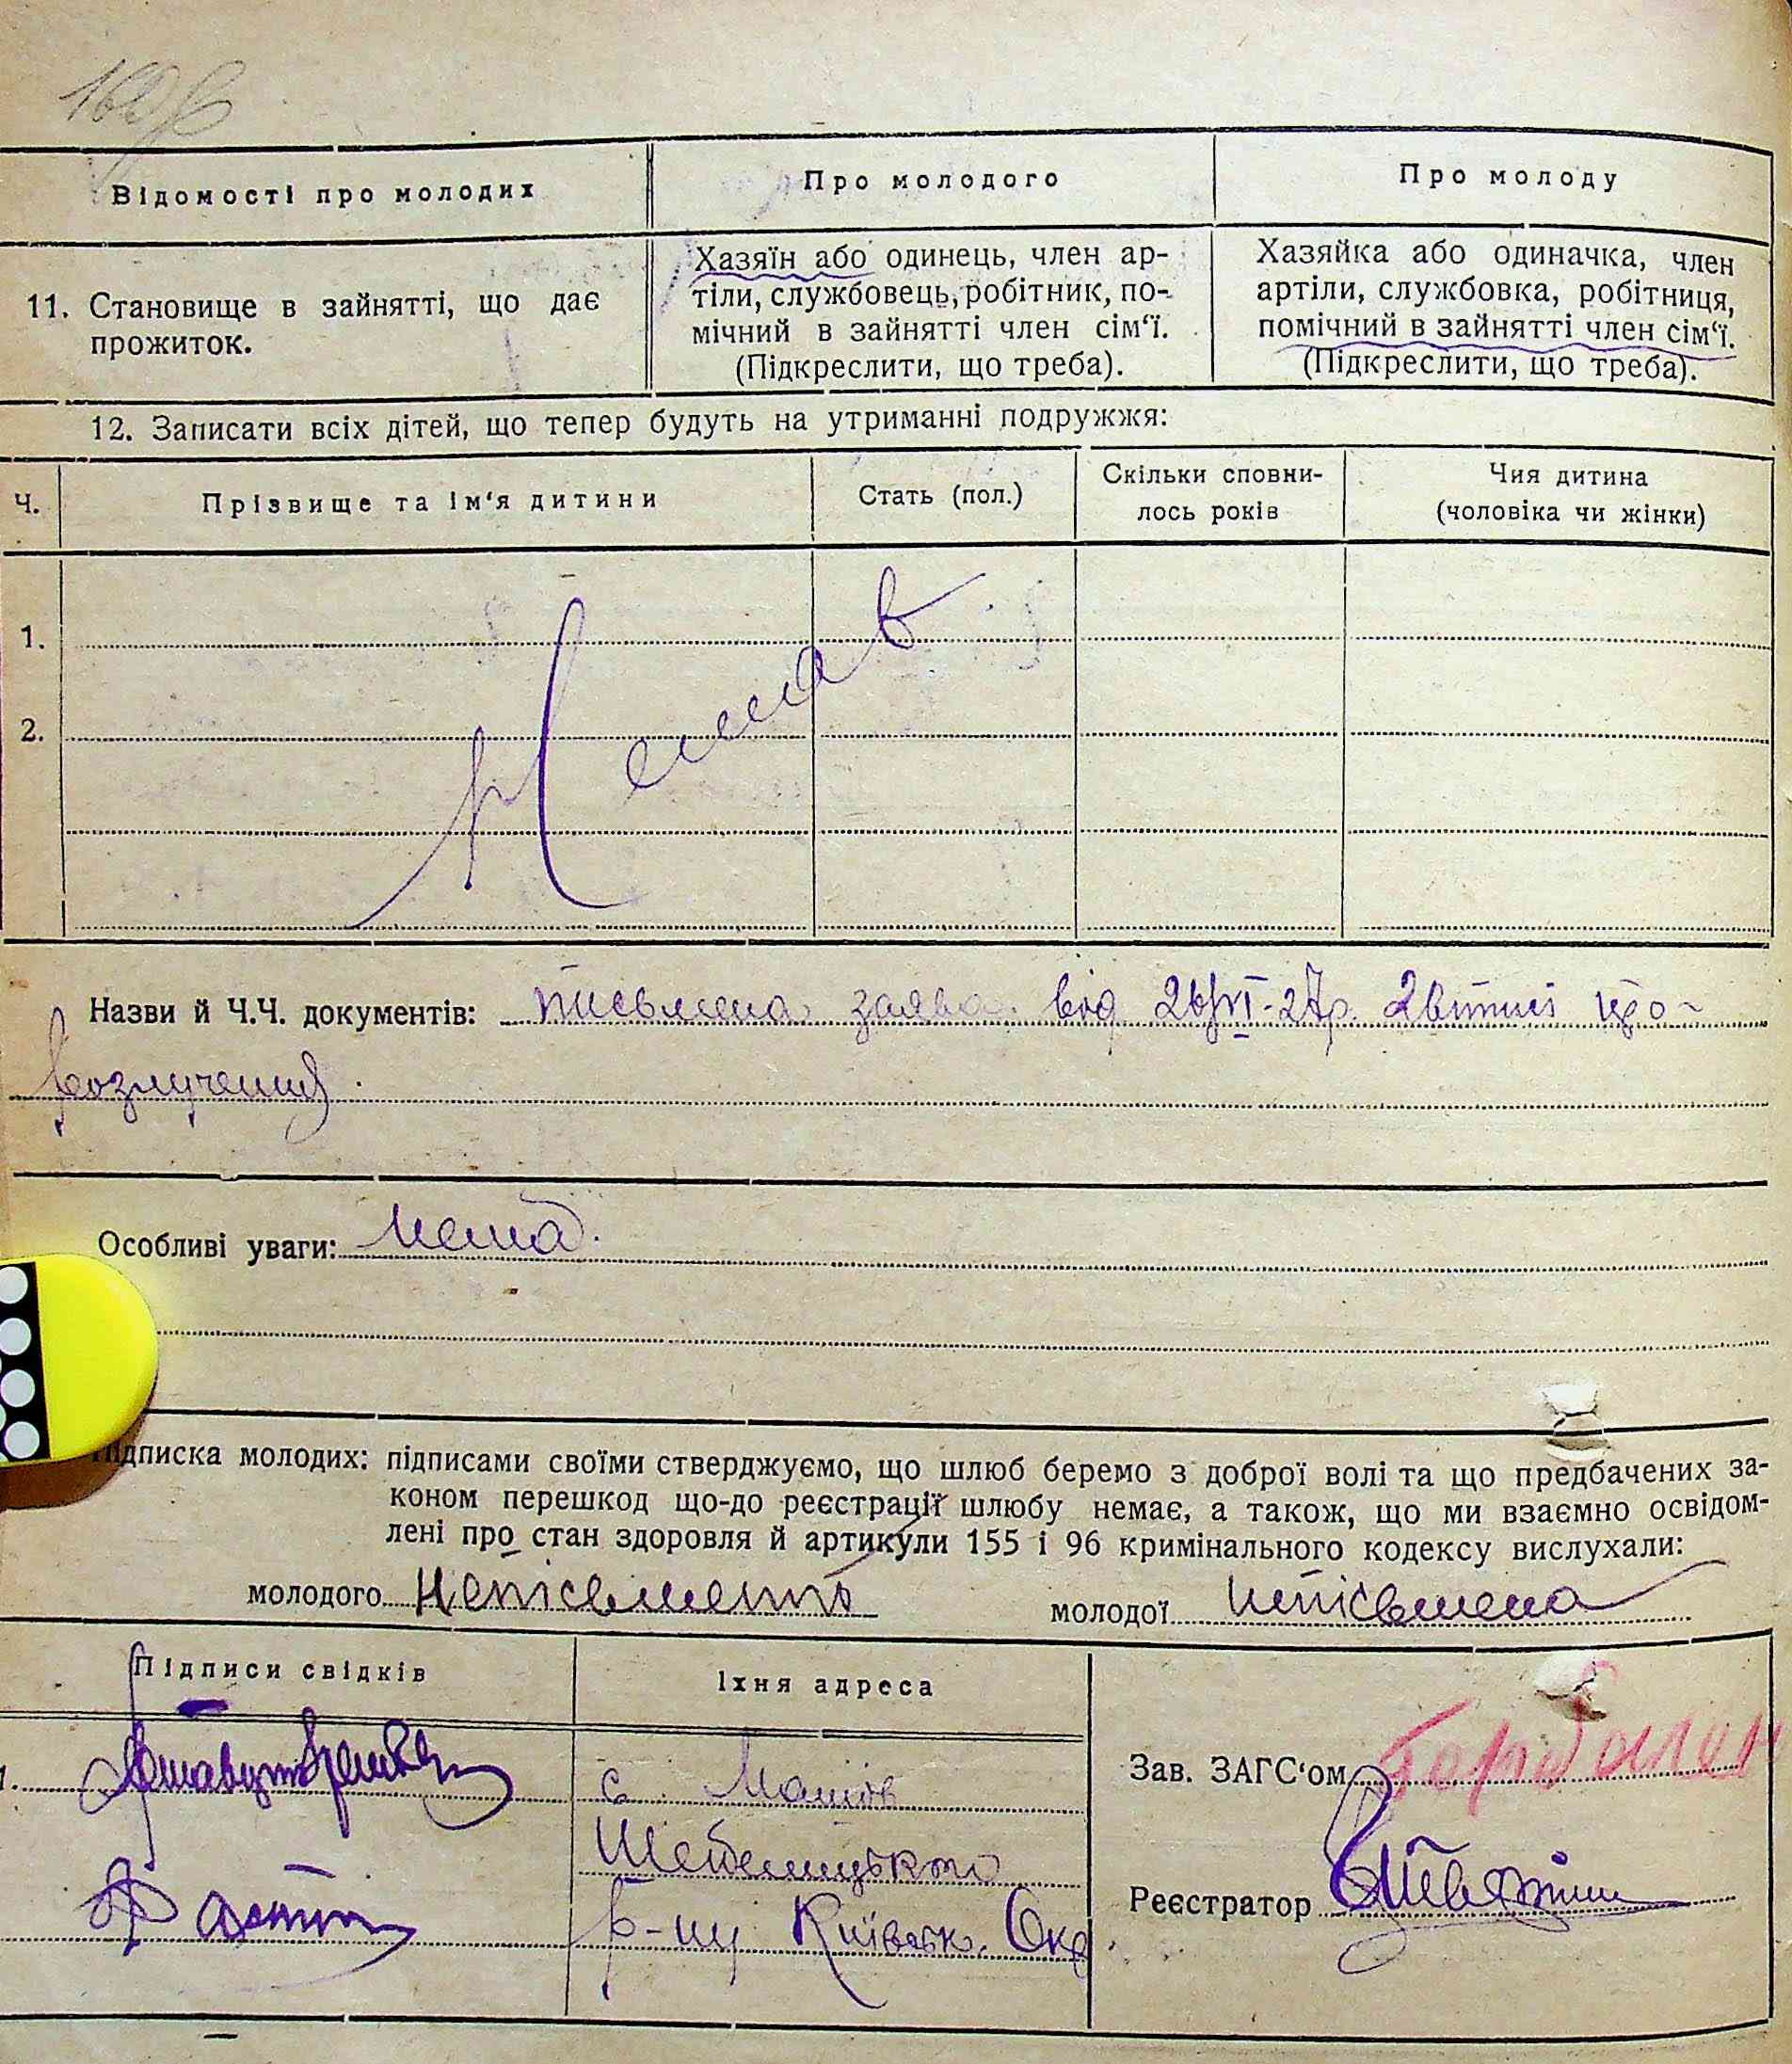 Відомості про молодих
Про молодого
Про молоду
11. Становище в зайнятті, що дає
прожиток.
Хазяїн або одинець, член ар-
тіли, службовець, робітник, по-
мічний в зайнятті член сім‘ї.
(Підкреслити, що треба).
Хазяйка або одиначка, член
артіли, службовка, робітниця,
помічний в зайнятті член сім‘ї.
(Підкреслити, що треба).
12. Записати всіх дітей, що тепер будуть на утриманні подружжя:
Ч.
Прізвище та ім‘я дитини
Стать (пол.)
Скільки сповни-
лось років
Чия дитина
(чоловіка чи жінки)
1.
2.
Назви й Ч.Ч. документів: письмена заява від
Особливі уваги: нема.
Підписка молодих: підписами своїми стверджуємо, що шлюб беремо з доброї волі та що предбачених за-
коном перешкод що-до реєстрації шлюбу немає, а також, що ми взаємно освідом-
лені про стан здоровля й артикули 155 і 96 кримінального кодексу вислухали:
молодого непісьменний
молодої непісьмена
Підписи свідків
Їхня адреса
1.
с.
р-ну Київськ. Окр
Зав. ЗАГС‘ом
Реєстратор